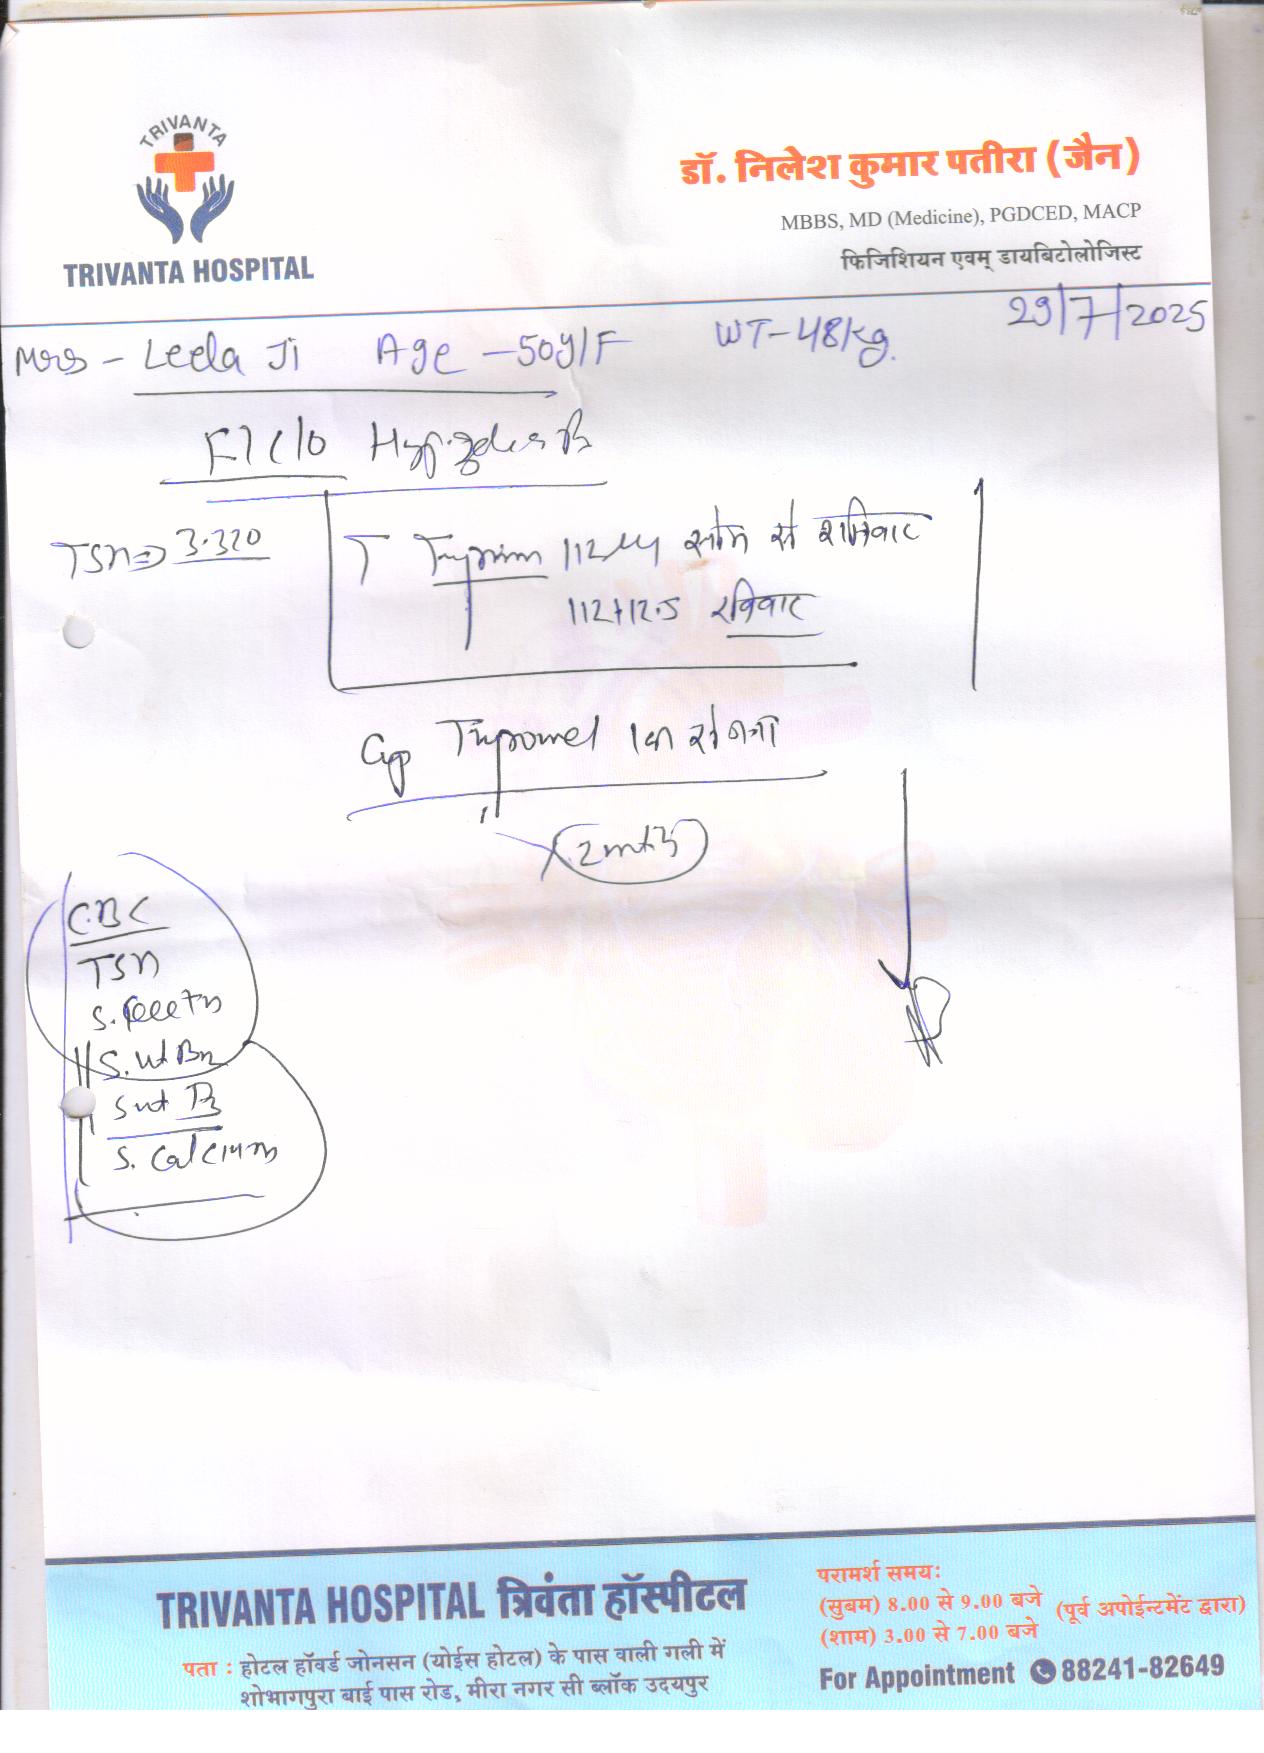 TRIVANTA
TRIVANTA HOSPITAL
डॉ. निलेश कुमार पतीरा (जैन)
MBBS, MD (Medicine), PGDCED, MACP
फिजिशियन एवम् डायबिटोलोजिस्ट
29/7/2025
Mrs - Leela Ji Age - 50y/F WT-48kg.
F/C/O
TSH => 3.320
T 112 सोम से शनिवार
112+12.5 रविवार
Cap
CBC
TSH
S.
S. Vit B12
S. Calcium
TRIVANTA HOSPITAL त्रिवंता हॉस्पीटल
पता : होटल हॉवर्ड जोनसन (योईस होटल) के पास वाली गली में
शोभागपुरा बाई पास रोड, मीरा नगर सी ब्लॉक उदयपुर
परामर्श समय:
(सुबम) 8.00 से 9.00 बजे (पूर्व अपोईन्टमेंट द्वारा)
(शाम) 3.00 से 7.00 बजे
For Appointment 88241-82649